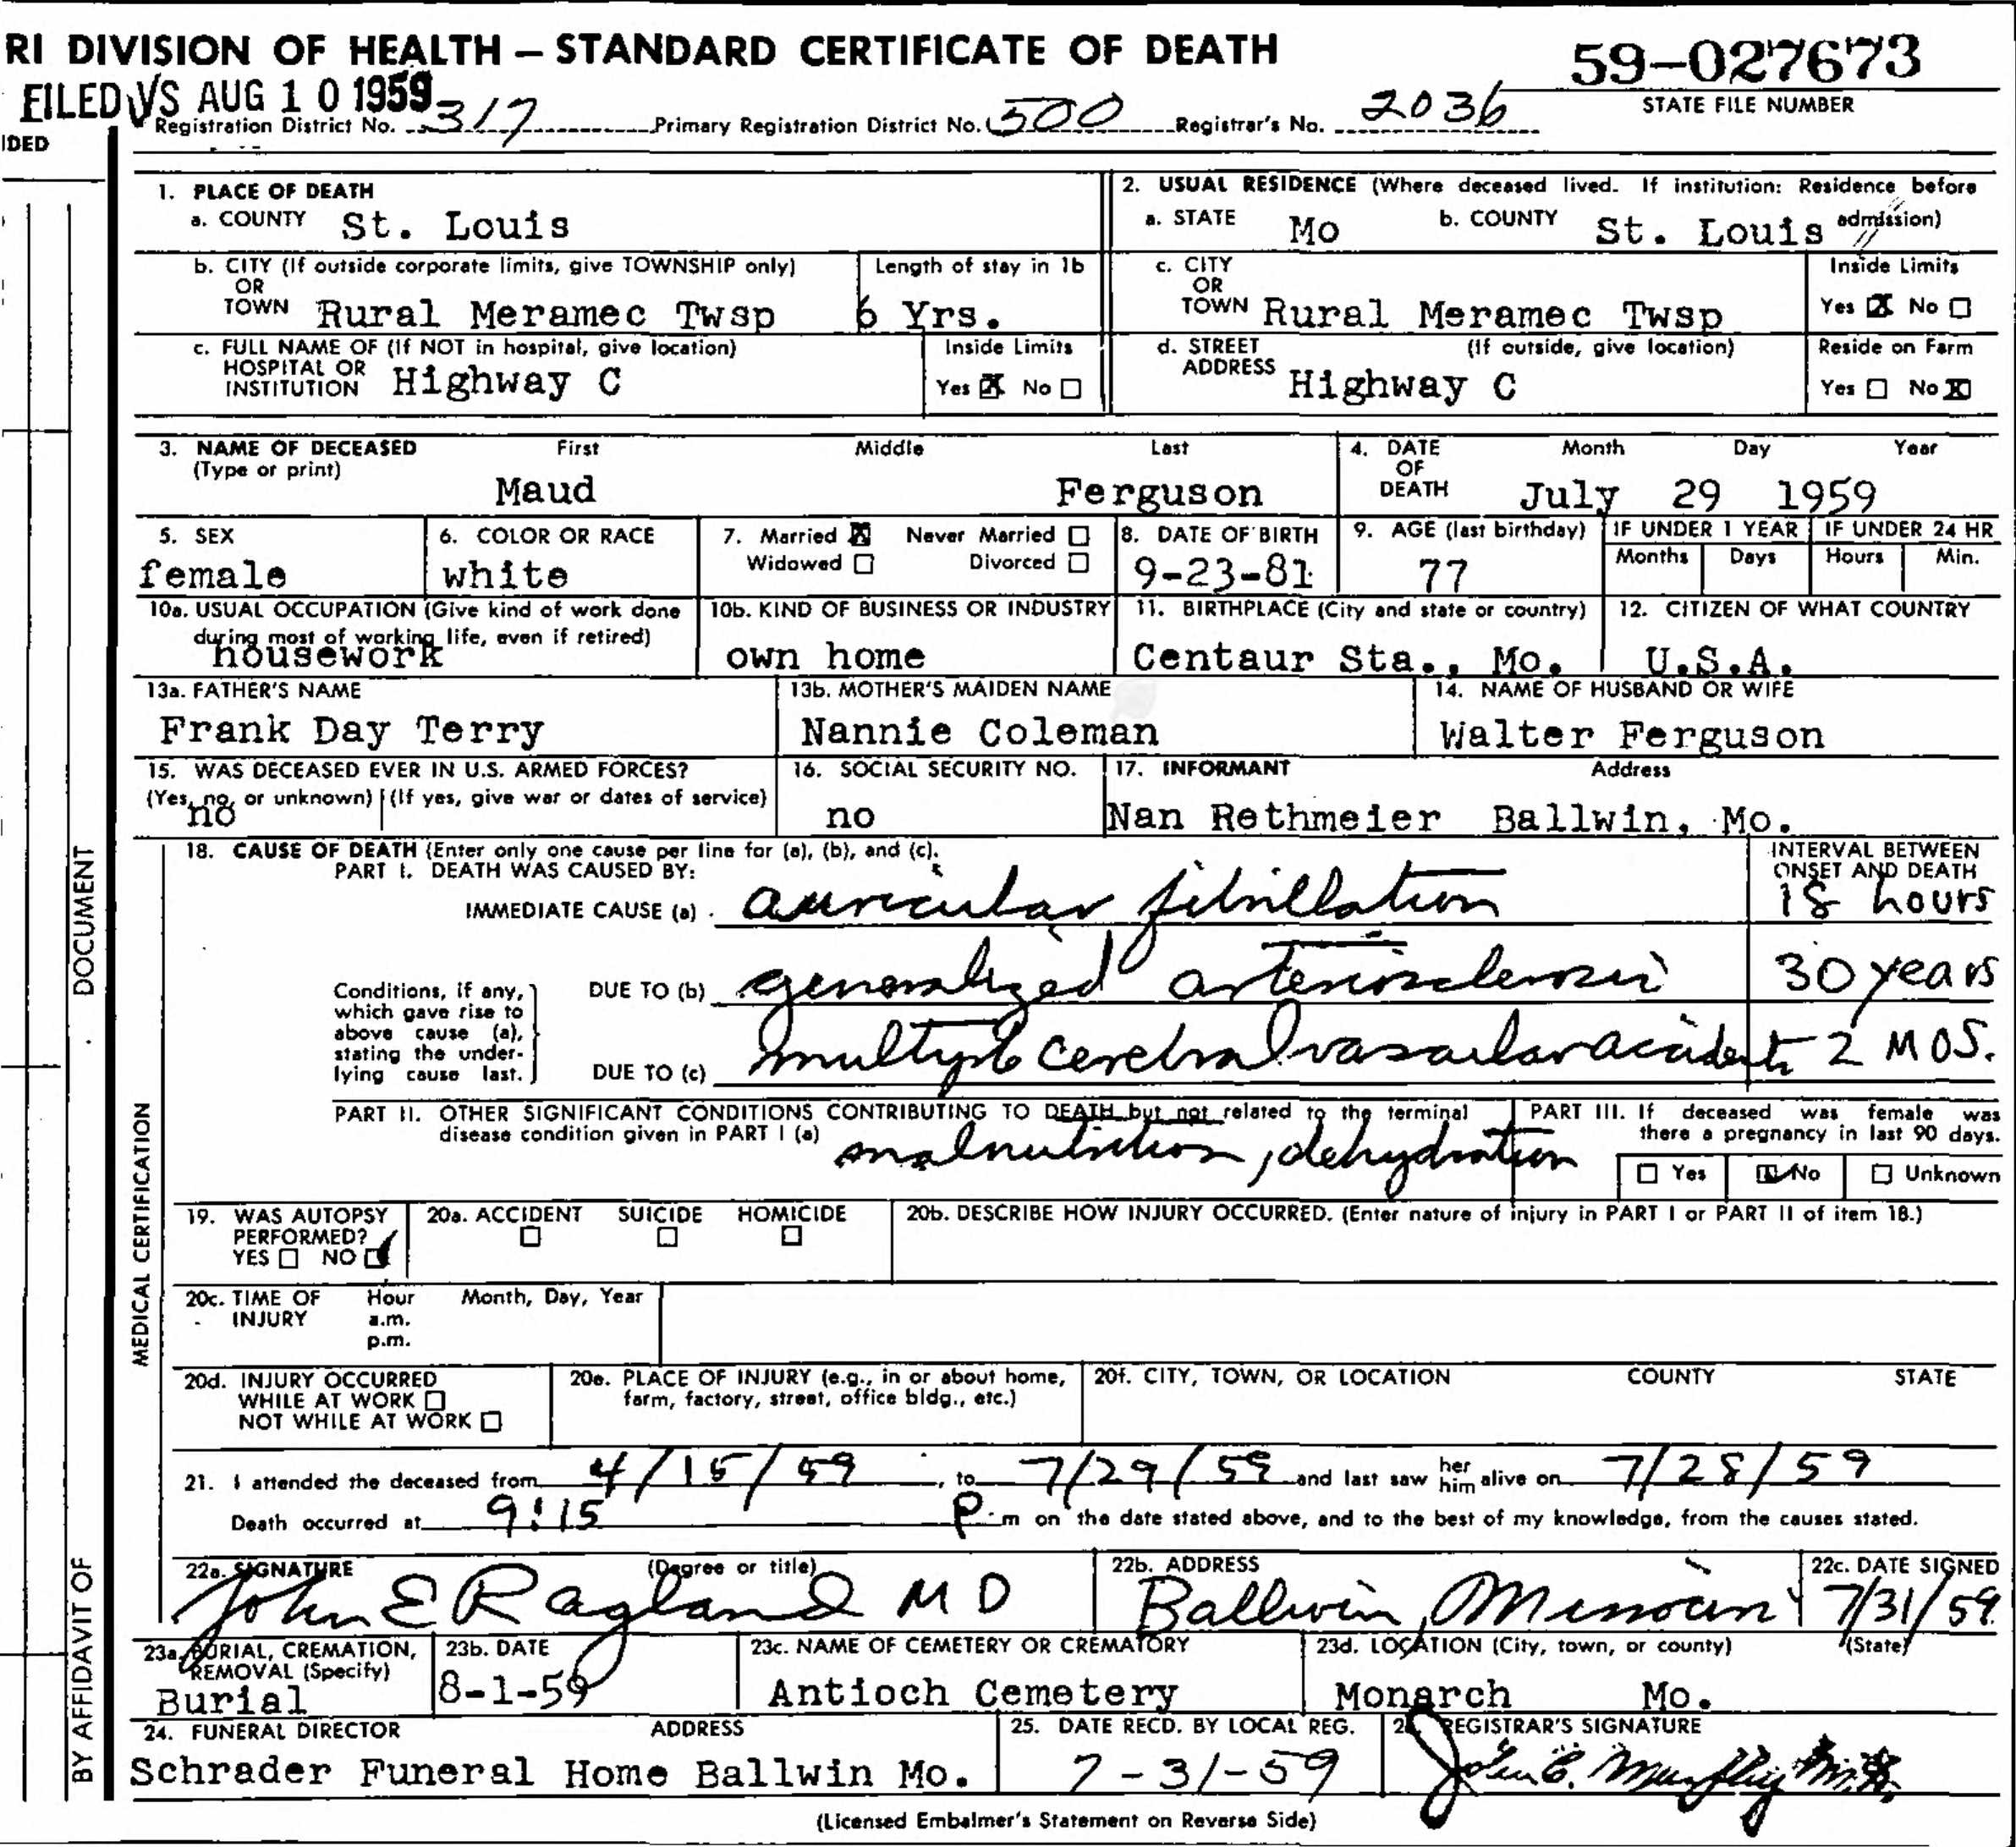 RI DIVISION OF HEALTH — STANDARD CERTIFICATE OF DEATH
59-027673
STATE FILE NUMBER
FILED VS AUG 10 1959
Registration District No. 317 Primary Registration District No. 500 Registrar's No. 2036
IDED
1. PLACE OF DEATH
a. COUNTY St. Louis
b. CITY (If outside corporate limits, give TOWNSHIP only) OR TOWN Rural Meramec Twsp
Length of stay in 1b 6 Yrs.
c. FULL NAME OF (If NOT in hospital, give location) HOSPITAL OR INSTITUTION Highway C
Inside Limits Yes X No
2. USUAL RESIDENCE (Where deceased lived. If institution: Residence before admission)
a. STATE Mo b. COUNTY St. Louis
c. CITY OR TOWN Rural Meramec Twsp
Inside Limits Yes X No
d. STREET ADDRESS (If outside, give location) Highway C
Reside on Farm Yes No X
3. NAME OF DECEASED (Type or print) First Middle Last
Maud Ferguson
4. DATE OF DEATH Month Day Year
July 29 1959
5. SEX female
6. COLOR OR RACE white
7. Married X Never Married
Widowed Divorced
8. DATE OF BIRTH 9-23-81
9. AGE (last birthday) 77
IF UNDER 1 YEAR Months Days
IF UNDER 24 HR Hours Min.
10a. USUAL OCCUPATION (Give kind of work done during most of working life, even if retired)
housework
10b. KIND OF BUSINESS OR INDUSTRY
own home
11. BIRTHPLACE (City and state or country)
Centaur Sta., Mo.
12. CITIZEN OF WHAT COUNTRY
U.S.A.
13a. FATHER'S NAME
Frank Day Terry
13b. MOTHER'S MAIDEN NAME
Nannie Coleman
14. NAME OF HUSBAND OR WIFE
Walter Ferguson
15. WAS DECEASED EVER IN U.S. ARMED FORCES?
(Yes, no, or unknown) (If yes, give war or dates of service)
no
16. SOCIAL SECURITY NO.
no
17. INFORMANT Address
Nan Rethmeier Ballwin, Mo.
18. CAUSE OF DEATH (Enter only one cause per line for (a), (b), and (c).
PART I. DEATH WAS CAUSED BY:
INTERVAL BETWEEN ONSET AND DEATH
IMMEDIATE CAUSE (a) auricular fibrillation 18 hours
Conditions, if any, which gave rise to above cause (a), stating the underlying cause last.
DUE TO (b) generalized arteriosclerosis 30 years
DUE TO (c) multiple cerebral vascular accidents 2 MOS.
PART II. OTHER SIGNIFICANT CONDITIONS CONTRIBUTING TO DEATH but not related to the terminal disease condition given in PART I (a)
malnutrition, dehydration
PART III. If deceased was female was there a pregnancy in last 90 days.
Yes No Unknown
19. WAS AUTOPSY PERFORMED?
YES NO
20a. ACCIDENT SUICIDE HOMICIDE
20b. DESCRIBE HOW INJURY OCCURRED. (Enter nature of injury in PART I or PART II of item 18.)
20c. TIME OF INJURY Hour a.m. p.m. Month, Day, Year
20d. INJURY OCCURRED
WHILE AT WORK
NOT WHILE AT WORK
20e. PLACE OF INJURY (e.g., in or about home, farm, factory, street, office bldg., etc.)
20f. CITY, TOWN, OR LOCATION COUNTY STATE
21. I attended the deceased from 4/15/59, to 7/29/59 and last saw her him alive on 7/28/59
Death occurred at 9:15 P.m on the date stated above, and to the best of my knowledge, from the causes stated.
22a. SIGNATURE (Degree or title)
John E Ragland MD
22b. ADDRESS
Ballwin, Missouri
22c. DATE SIGNED
7/31/59
23a. BURIAL, CREMATION, REMOVAL (Specify)
Burial
23b. DATE
8-1-59
23c. NAME OF CEMETERY OR CREMATORY
Antioch Cemetery
23d. LOCATION (City, town, or county) (State)
Monarch Mo.
24. FUNERAL DIRECTOR ADDRESS
Schrader Funeral Home Ballwin Mo.
25. DATE RECD. BY LOCAL REG.
7-31-59
REGISTRAR'S SIGNATURE
John C. Murphy M.D.
(Licensed Embalmer's Statement on Reverse Side)
DOCUMENT
MEDICAL CERTIFICATION
BY AFFIDAVIT OF